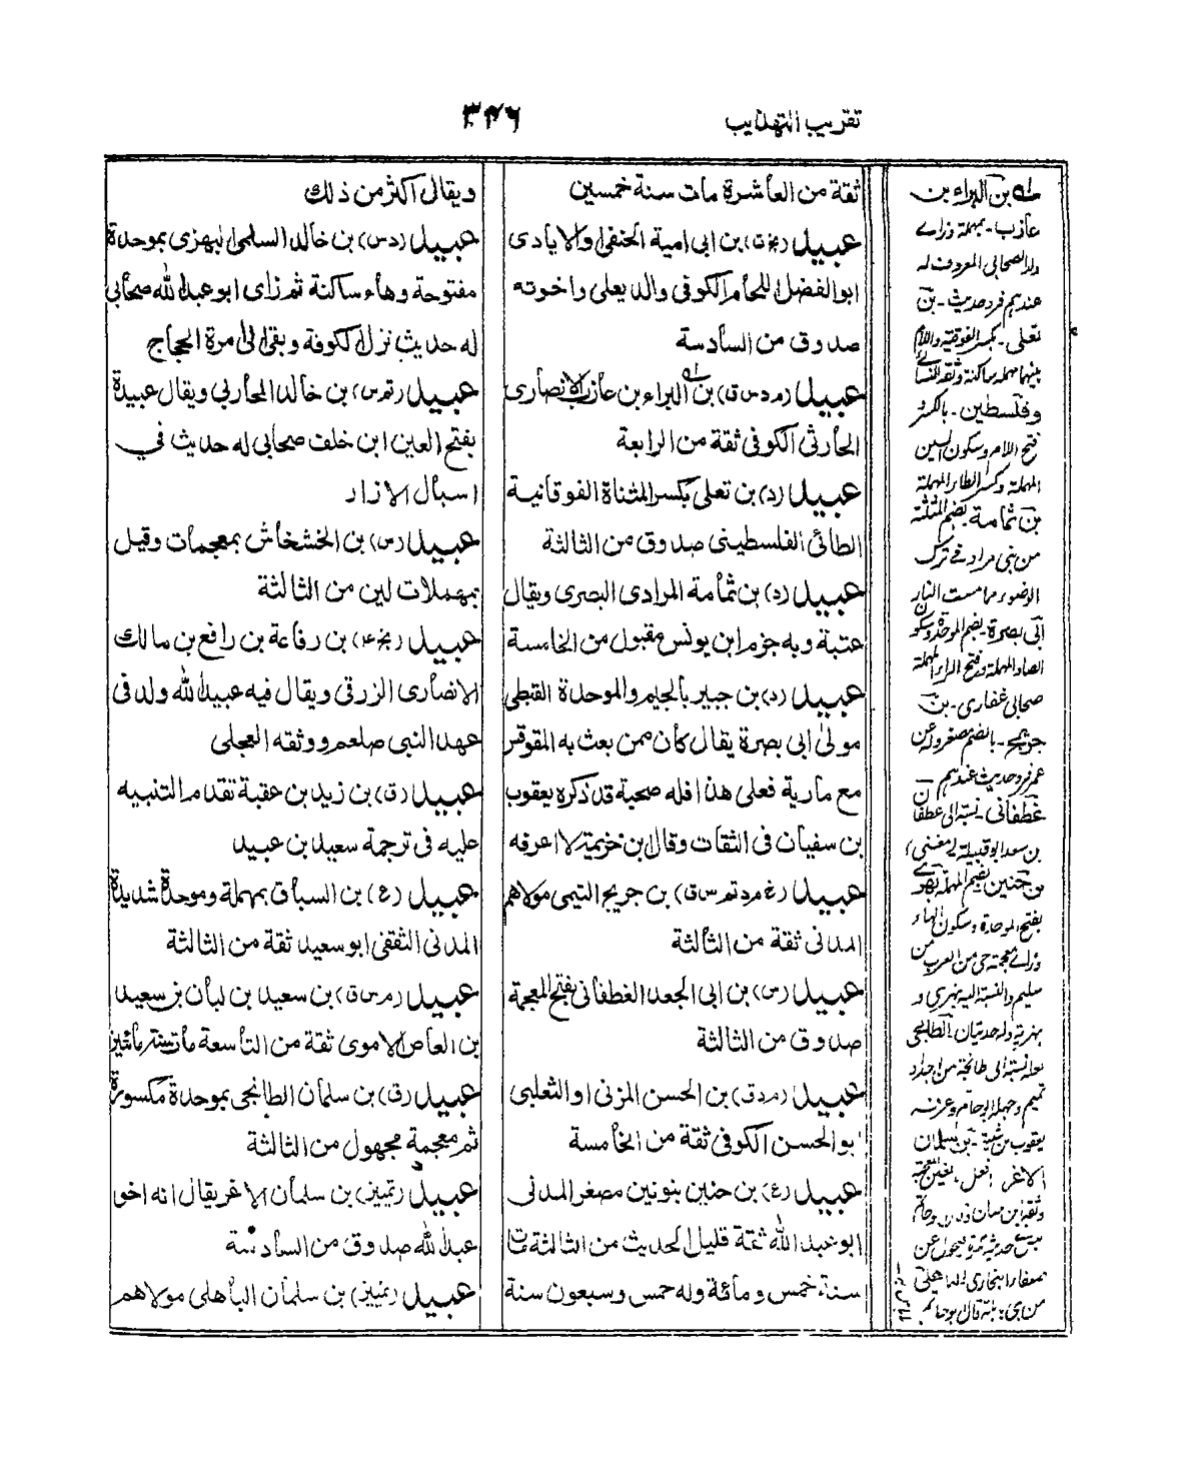 تقریب التهذیب
۳۴۶
ثقة من العاشرة مات سنة خمسین
عبید (بخ ق) بن ابی امیة الحنفی او الایادی
ابو الفضل اللحام الکوفی والد یعلی واخوته
صدوق من السادسة
عبید (م د س ق) بن البراء بن عازب الانصاری
الحارثی الکوفی ثقة من الرابعة
عبید (د) بن تعلی بکسر المثناة الفوقانیة
الطائی الفلسطینی صدوق من الثالثة
عبید (د) بن ثمامة المرادی البصری ویقال
عتبة وبه جزم ابن یونس مقبول من الخامسة
عبید (د) بن جبیر بالجیم والموحدة القبطی
مولی ابی بصرة یقال کان ممن بعث به المقوقس
مع ماریة فعلی هذا فله صحبة قد ذکره یعقوب
بن سفیان فی الثقات وقال بن خزیمة لا اعرفه
عبید (رغ مرد تم س ق) بن جریج التیمی مولاهم
المدنی ثقة من الثالثة
عبید (س) بن ابی الجعد الغطفانی بفتح المعجمة
صدوق من الثالثة
عبید (م د ق) بن الحسن المزنی او الثعلبی
ابو الحسن الکوفی ثقة من الخامسة
عبید (ع) بن حنین بنونین مصغر المدنی
ابو عبد الله ثقة قلیل الحدیث من الثالثة مات
سنة خمس ومائة وله خمس وسبعون سنة
ویقال اکثر من ذلك
عبید (د س) بن خالد السلمی البهزی بموحدة
مفتوحة وهاء ساکنة ثم زای ابو عبد الله صحابی
له حدیث نزل الکوفة وبقی الی مرة الحجاج
عبید (تم س) بن خالد المحاربی ویقال عبیدة
بفتح العین ابن خلف صحابی له حدیث فی
اسبال الازار
عبید (س) بن الخشخاش بمعجمات وقیل
بمهملات لین من الثالثة
عبید (بخ ۴) بن رفاعة بن رافع بن مالك
الانصاری الزرقی ویقال فیه عبید الله ولد فی
عهد النبی صلعم ووثقه العجلی
عبید (ق) بن زید بن عقبة تقدم التنبیه
علیه فی ترجمة سعید بن عبید
عبید (ع) بن السباق بمهملة وموحدة شدیدة
المدنی الثقفی ابو سعید ثقة من الثالثة
عبید (م س ق) بن سعید بن ابان بن سعید
بن العاص الاموی ثقة من التاسعة مات سنة مائتین
عبید (ق) بن سلمان الطابخی بموحدة مکسورة
ثم معجمة مجهول من الثالثة
عبید (تمییز) بن سلمان الاغر یقال انه اخو
عبد الله صدوق من السادسة
عبید (تمییز) بن سلمان الباهلی مولاهم
له بن البراء بن
عازب - بمهملة وزاے
ولد الصحابی المعروف له
عندهم فرد حدیث - بن
تعلی - بکسر الفوقیة واللام
بینهما مهملة ساکنة وثقه النسائے
وفلسطین - بالکسر
فتح اللام وسکون السین
المهملة وکسر الطاء المهملة
بن ثمامة بضم المثلثة
من بنی مراد فی ترک
الوضوء مما مست النار
ابی بصرة - بضم الموحدة وسکون
الصاد المهملة وفتح الراء المهملة
صحابی غفاری - بن
جریج - بالضم مصغر وله عن
عمر فرد حدیث عندهم -
غطفانی - نسبة الی غطفان
بن سعد ابو قبیلة (مغنی)
بن حنین بضم المهملة بهزے
بفتح الموحدة وسکون الهاء
وزاے معجمة حی من العرب من
سلیم والنسبة الیه بهزی و
بهزیة وله حدیثان - الطابخی
لعله نسبة الی طابخة من اجداد
تمیم وجهله ابو حاتم وعرفه
یعقوب بن شیبة - بن سلمان
الاغر - افعل - بغین معجمة
وثقه ابن حبان